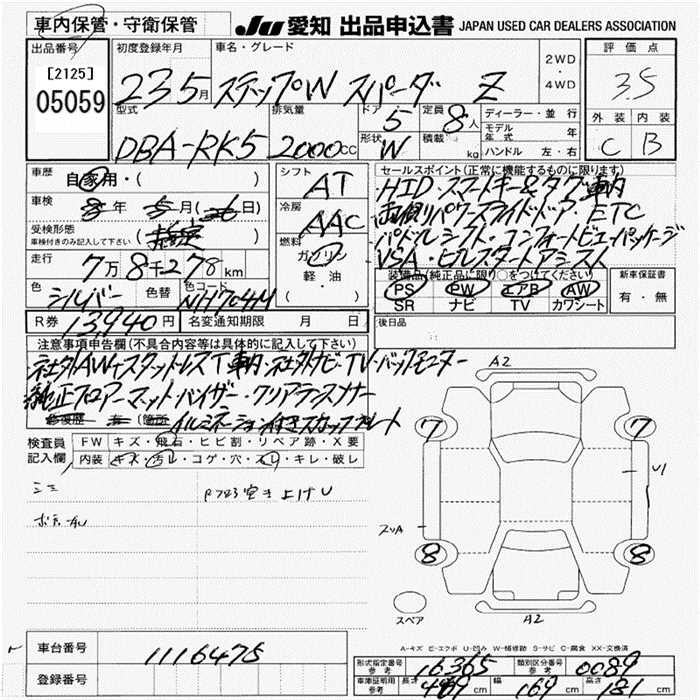 車内保管・守衛保管
JU 愛知 出品申込書 JAPAN USED CAR DEALERS ASSOCIATION
出品番号
[2125]
05059
初度登録年月
車名・グレード
23 5月 ステップW スパーダ Z
2WD
・
4WD
評価点
3.5
外装 内装
C B
型式
DBA-RK5
排気量
2000cc
ドア
5
形状
W
定員
8人
積載
kg
ディーラー・並行
モデル年式 年
ハンドル 左・右
車歴
自家用・( )
車検
年 5月( 日)
受検形態
車検付きのみ記入して下さい
走行
7万8千278km
色
シルバー
色替
色コード
NH704M
シフト
AT
冷房
AAC
燃料
ガソリン
・
軽油
( )
セールスポイント(正常に機能するものに限ります)
・HID・スマートキー&タグ車内
・両側パワースライドドア・ETC
・パドルシフト・コンフォートビューパッケージ
・VSA・ヒルスタートアシスト
装備品(純正品に限り○をつけてください)
PS PW エアB AW
SR ナビ TV カワシート
新車保証書
有・無
R券 13940円
名変通知期限 月 日
後日品
注意事項申告欄(不具合内容等は具体的に記入して下さい)
社外ナビ・TV・バックモニター
純正フロアーマット・バイザー・クリアランスソナー
修復歴 有 (箇所
イルミネーション付きスカッフプレート
検査員
記入欄
FW キズ・飛石・ヒビ割・リペア跡・X要
内装 キズ・汚レ・コゲ・穴・スレ・キレ・破レ
A2
7 7
U1
8 8
スペア
A2
A-キズ E-エクボ U-凹み W-補修跡 S-サビ C-腐食 XX-交換済
車台番号 1116475
登録番号
形式指定番号
参考
16365
類別区分番号
参考
0089
車体証明用
参考
長さ 469cm 幅 169cm 高さ 181cm